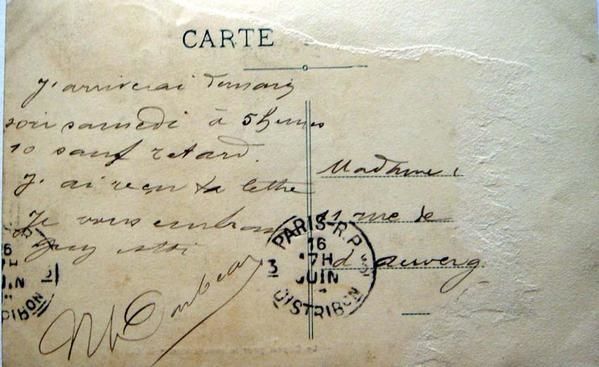 CARTE
J'arriverai demain
soir samedi à 5 heures
10 sauf retard.
J'ai reçu ta lettre
Je vous embrass
Madame
11 rue de
d'auverg
PARIS-R.P.
16
17H
JUIN
DISTRIBON
16
7H
IN
RIBON